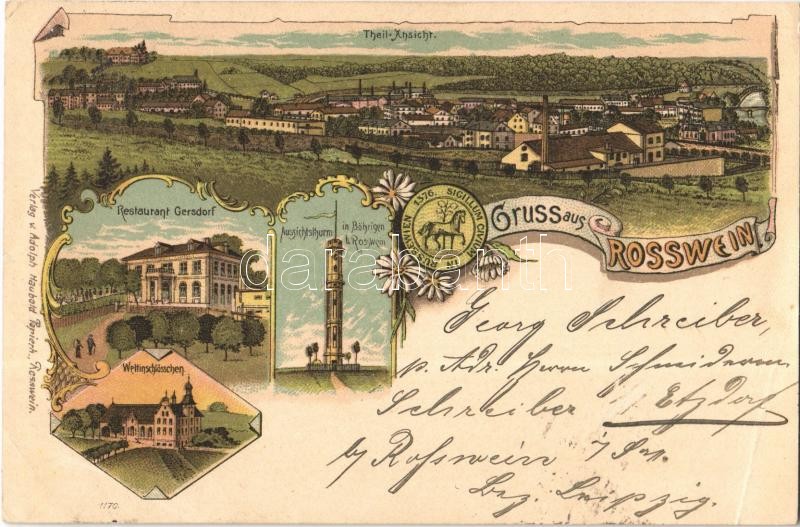 Theil-Ansicht.
Restaurant Gersdorf
Aussichtsthurm
in Böhrigen
b. Rosswein
1376. SIGILLUM
GRUSS aus
ROSSWEIN
Wettinschlösschen
Verlag v. Adolph Haubold Papierh., Rosswein.
1170.
darabanth
Georg Schreiber,
p. Adr. Herrn Schneiderm
Schreiber Etzdorf
b/ Rosswein i/ Sa.
Bez. Leipzig.